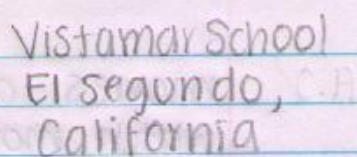 Vistamar School
El Segundo,
California